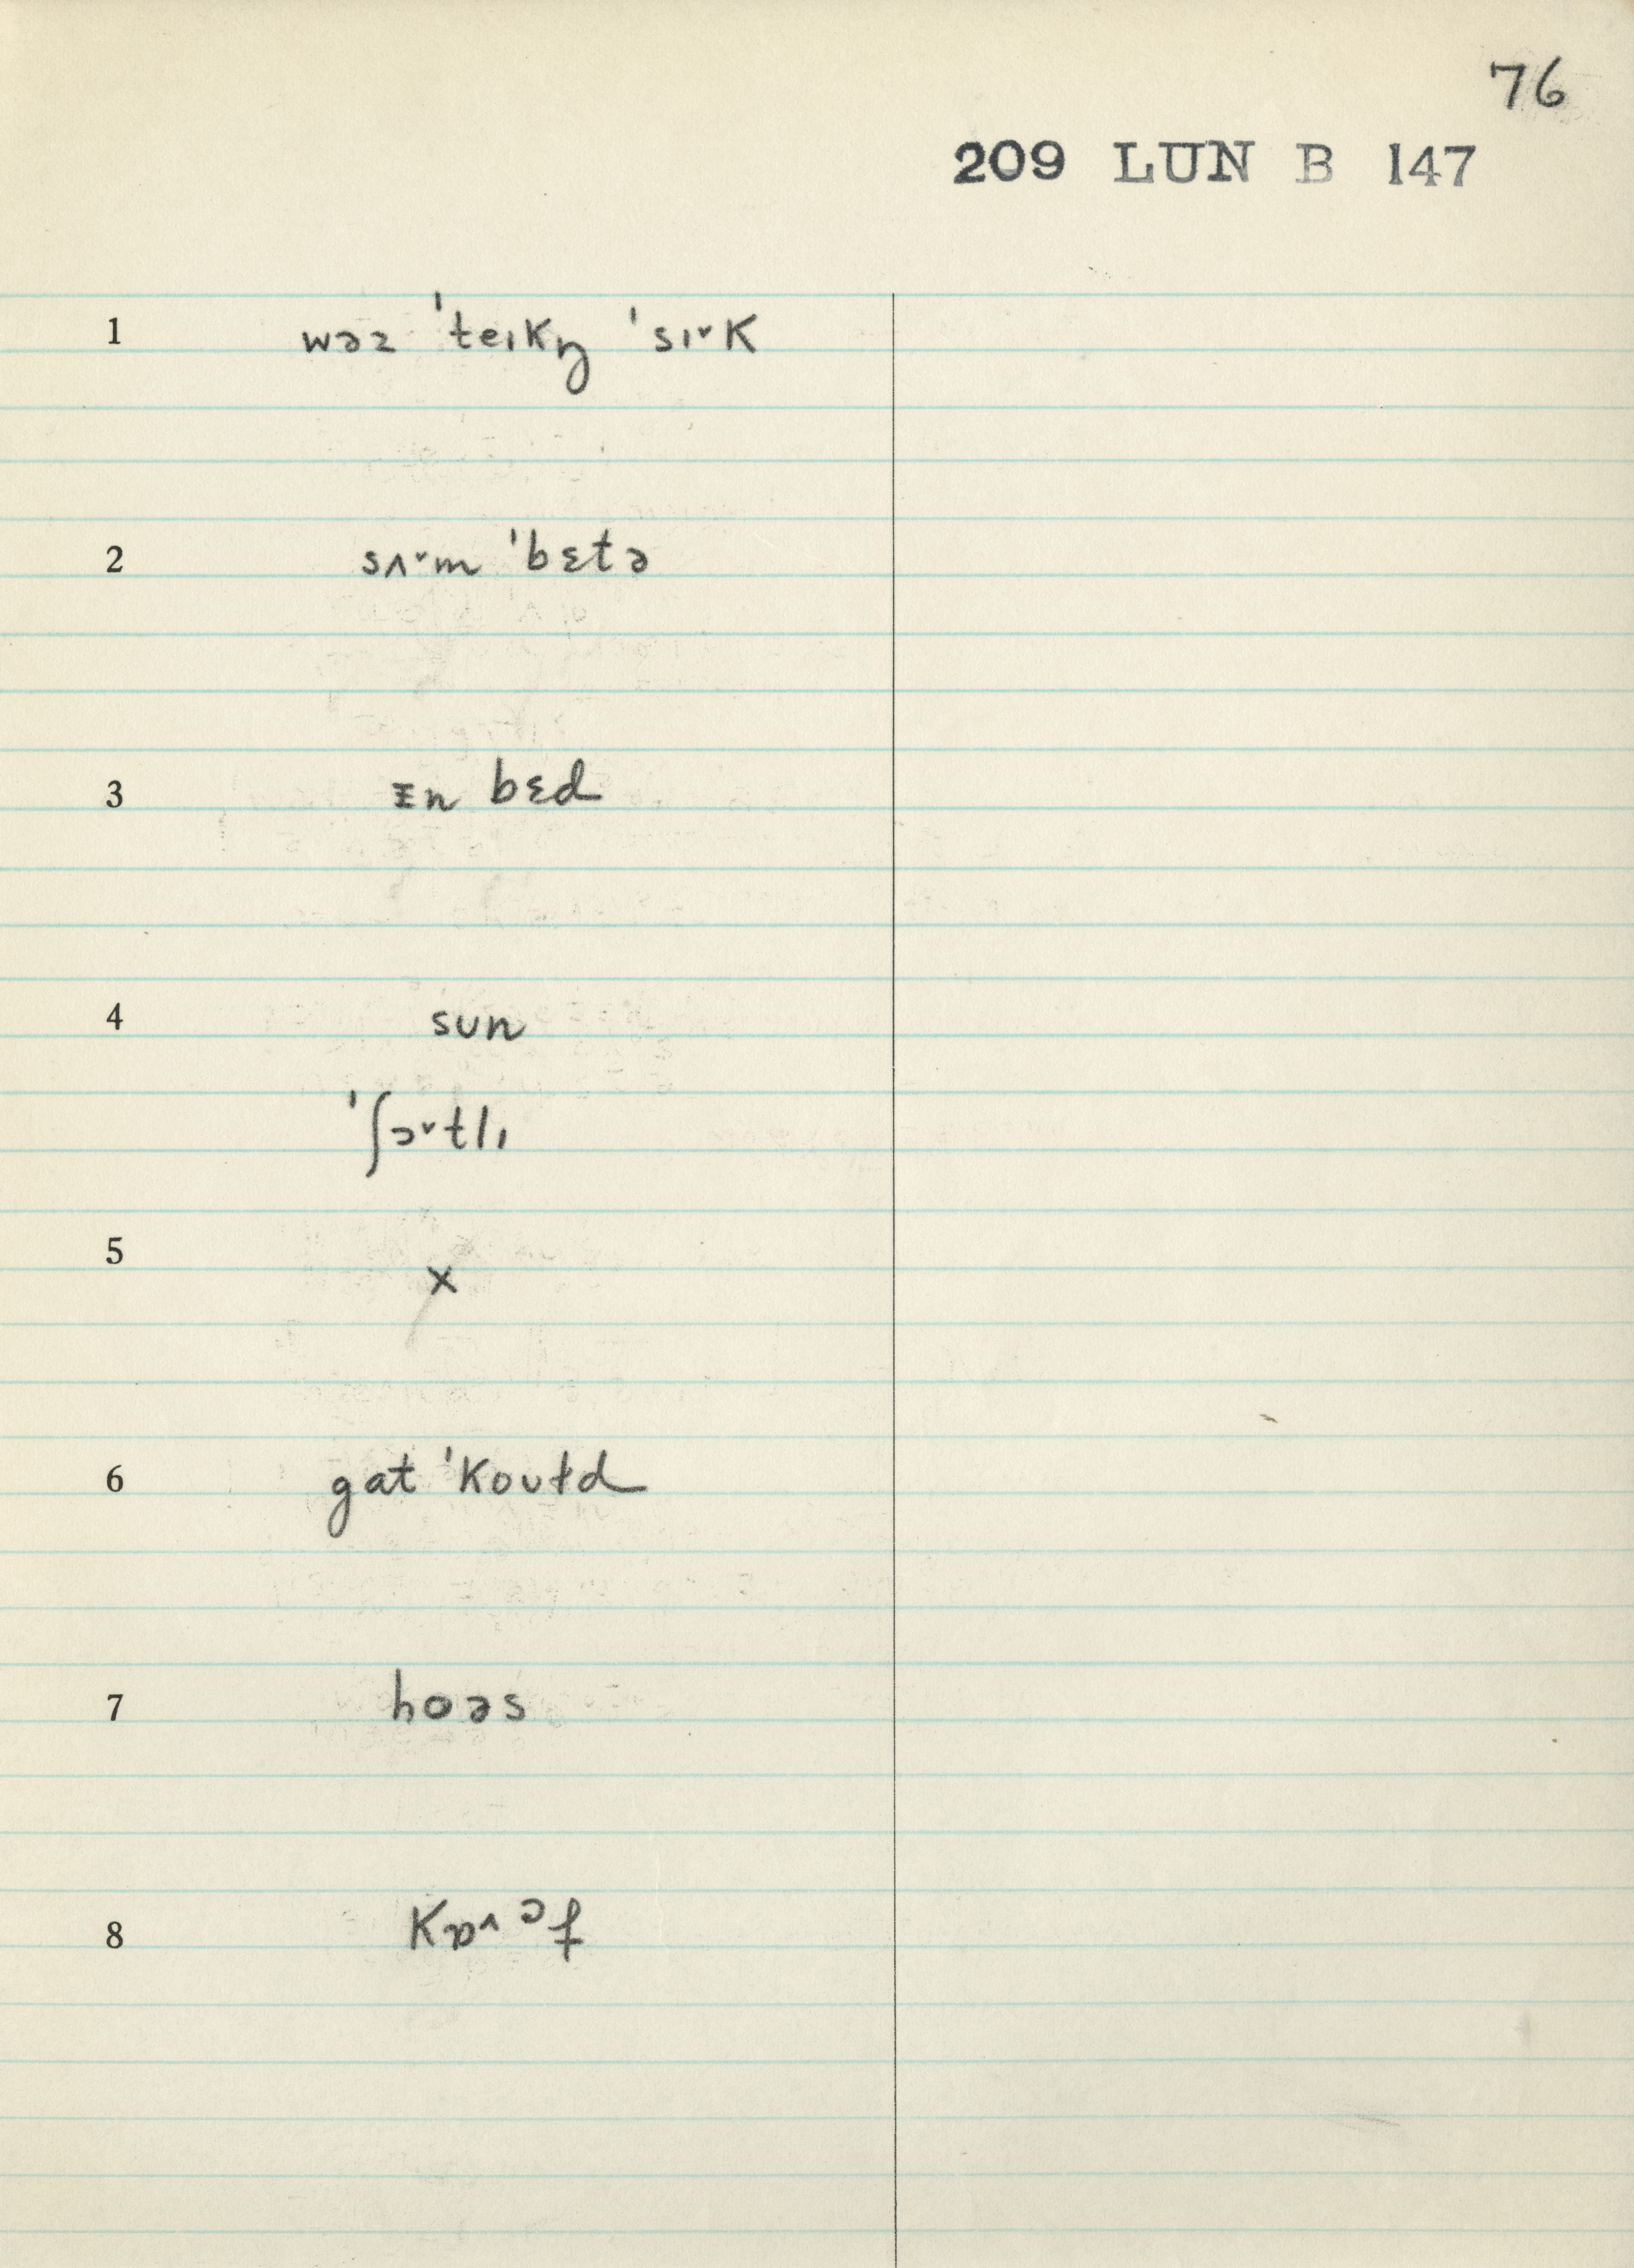 76
209 LUN B 147
1 wəz ˈteɪkŋ̍ ˈsɪ˅k
2 sʌ˅m ˈbɛtə
3 ɪn bɛd
4 sun
ˈʃɔ˅tlɪ
5 x
6 gat ˈkoʊɫd
7 hoəs
8 kɒ˄ɔf